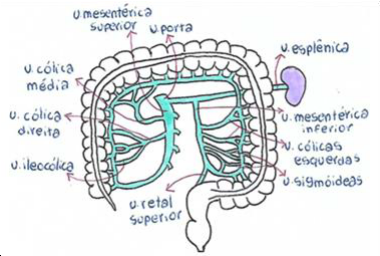 v. mesentérica
superior
v. porta
v. esplênica
v. cólica
média
v. cólica
direita
v. mesentérica
inferior
v. cólicas
esquerdas
v. ileocólica
v. sigmóideas
v. retal
superior